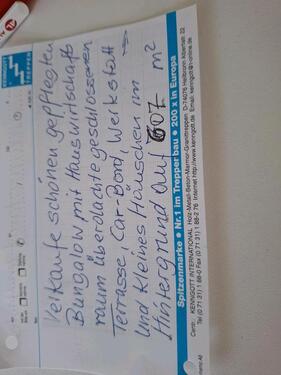 KENNGOTT
TREPPEN
Verkaufe schönen gepflegten
Bungalow mit Hauswirtschafts
raum überdachte geschlossenen
Terrasse, Car-Bord, Werkstatt
und kleines Häuschen im
Hintergrund auf 607 m²
Spitzenmarke • Nr.1 im Treppenbau • 200 x in Europa
KENNGOTT INTERNATIONAL Holz-Metall-Beton-Marmor-Granittreppen, D-74076 Heilbronn Albertistr. 22
Tel (0 71 31) 1 88-0 Fax (0 71 31) 1 88-2 76 Internet http://www.kenngott.de Email: kenngott@t-online.de